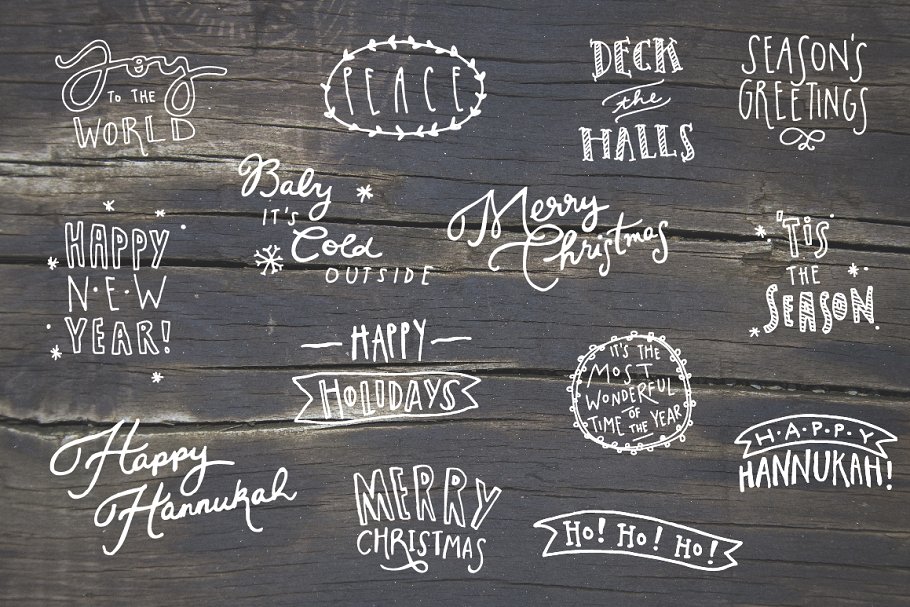 Joy
TO THE
WORLD
PEACE
DECK
the
HALLS
SEASON'S
GREETINGS
Baby
IT'S
Cold
OUTSIDE
Merry
Christmas
'TIS
THE
SEASON.
HAPPY
N·E·W
YEAR!
HAPPY
HOLIDAYS
IT'S THE
MOST
WONDERFUL
OF
TIME THE YEAR
H·A·P·P·Y
HANNUKAH!
Happy
Hannukah
MERRY
CHRISTMAS
HO! HO! HO!